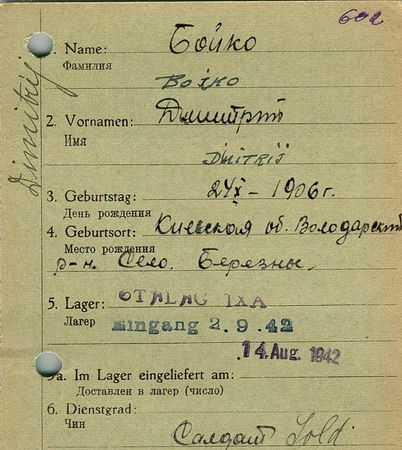 602
Dimitrij
1. Name: Бойко
Фамилия
Boiko
2. Vornamen: Дмитрий
Имя
Dmitrij
3. Geburtstag: 24 X – 1906 г.
День рождения
4. Geburtsort: Киевская об. Володарский
Место рождения
р-н. Село. Березны.
5. Lager: STALAG IXA
Лагер
Eingang 2.9.42
14. Aug. 1942
5a. Im Lager eingeliefert am:
Доставлен в лагер (число)
6. Dienstgrad:
Чин
Салдат Sold.